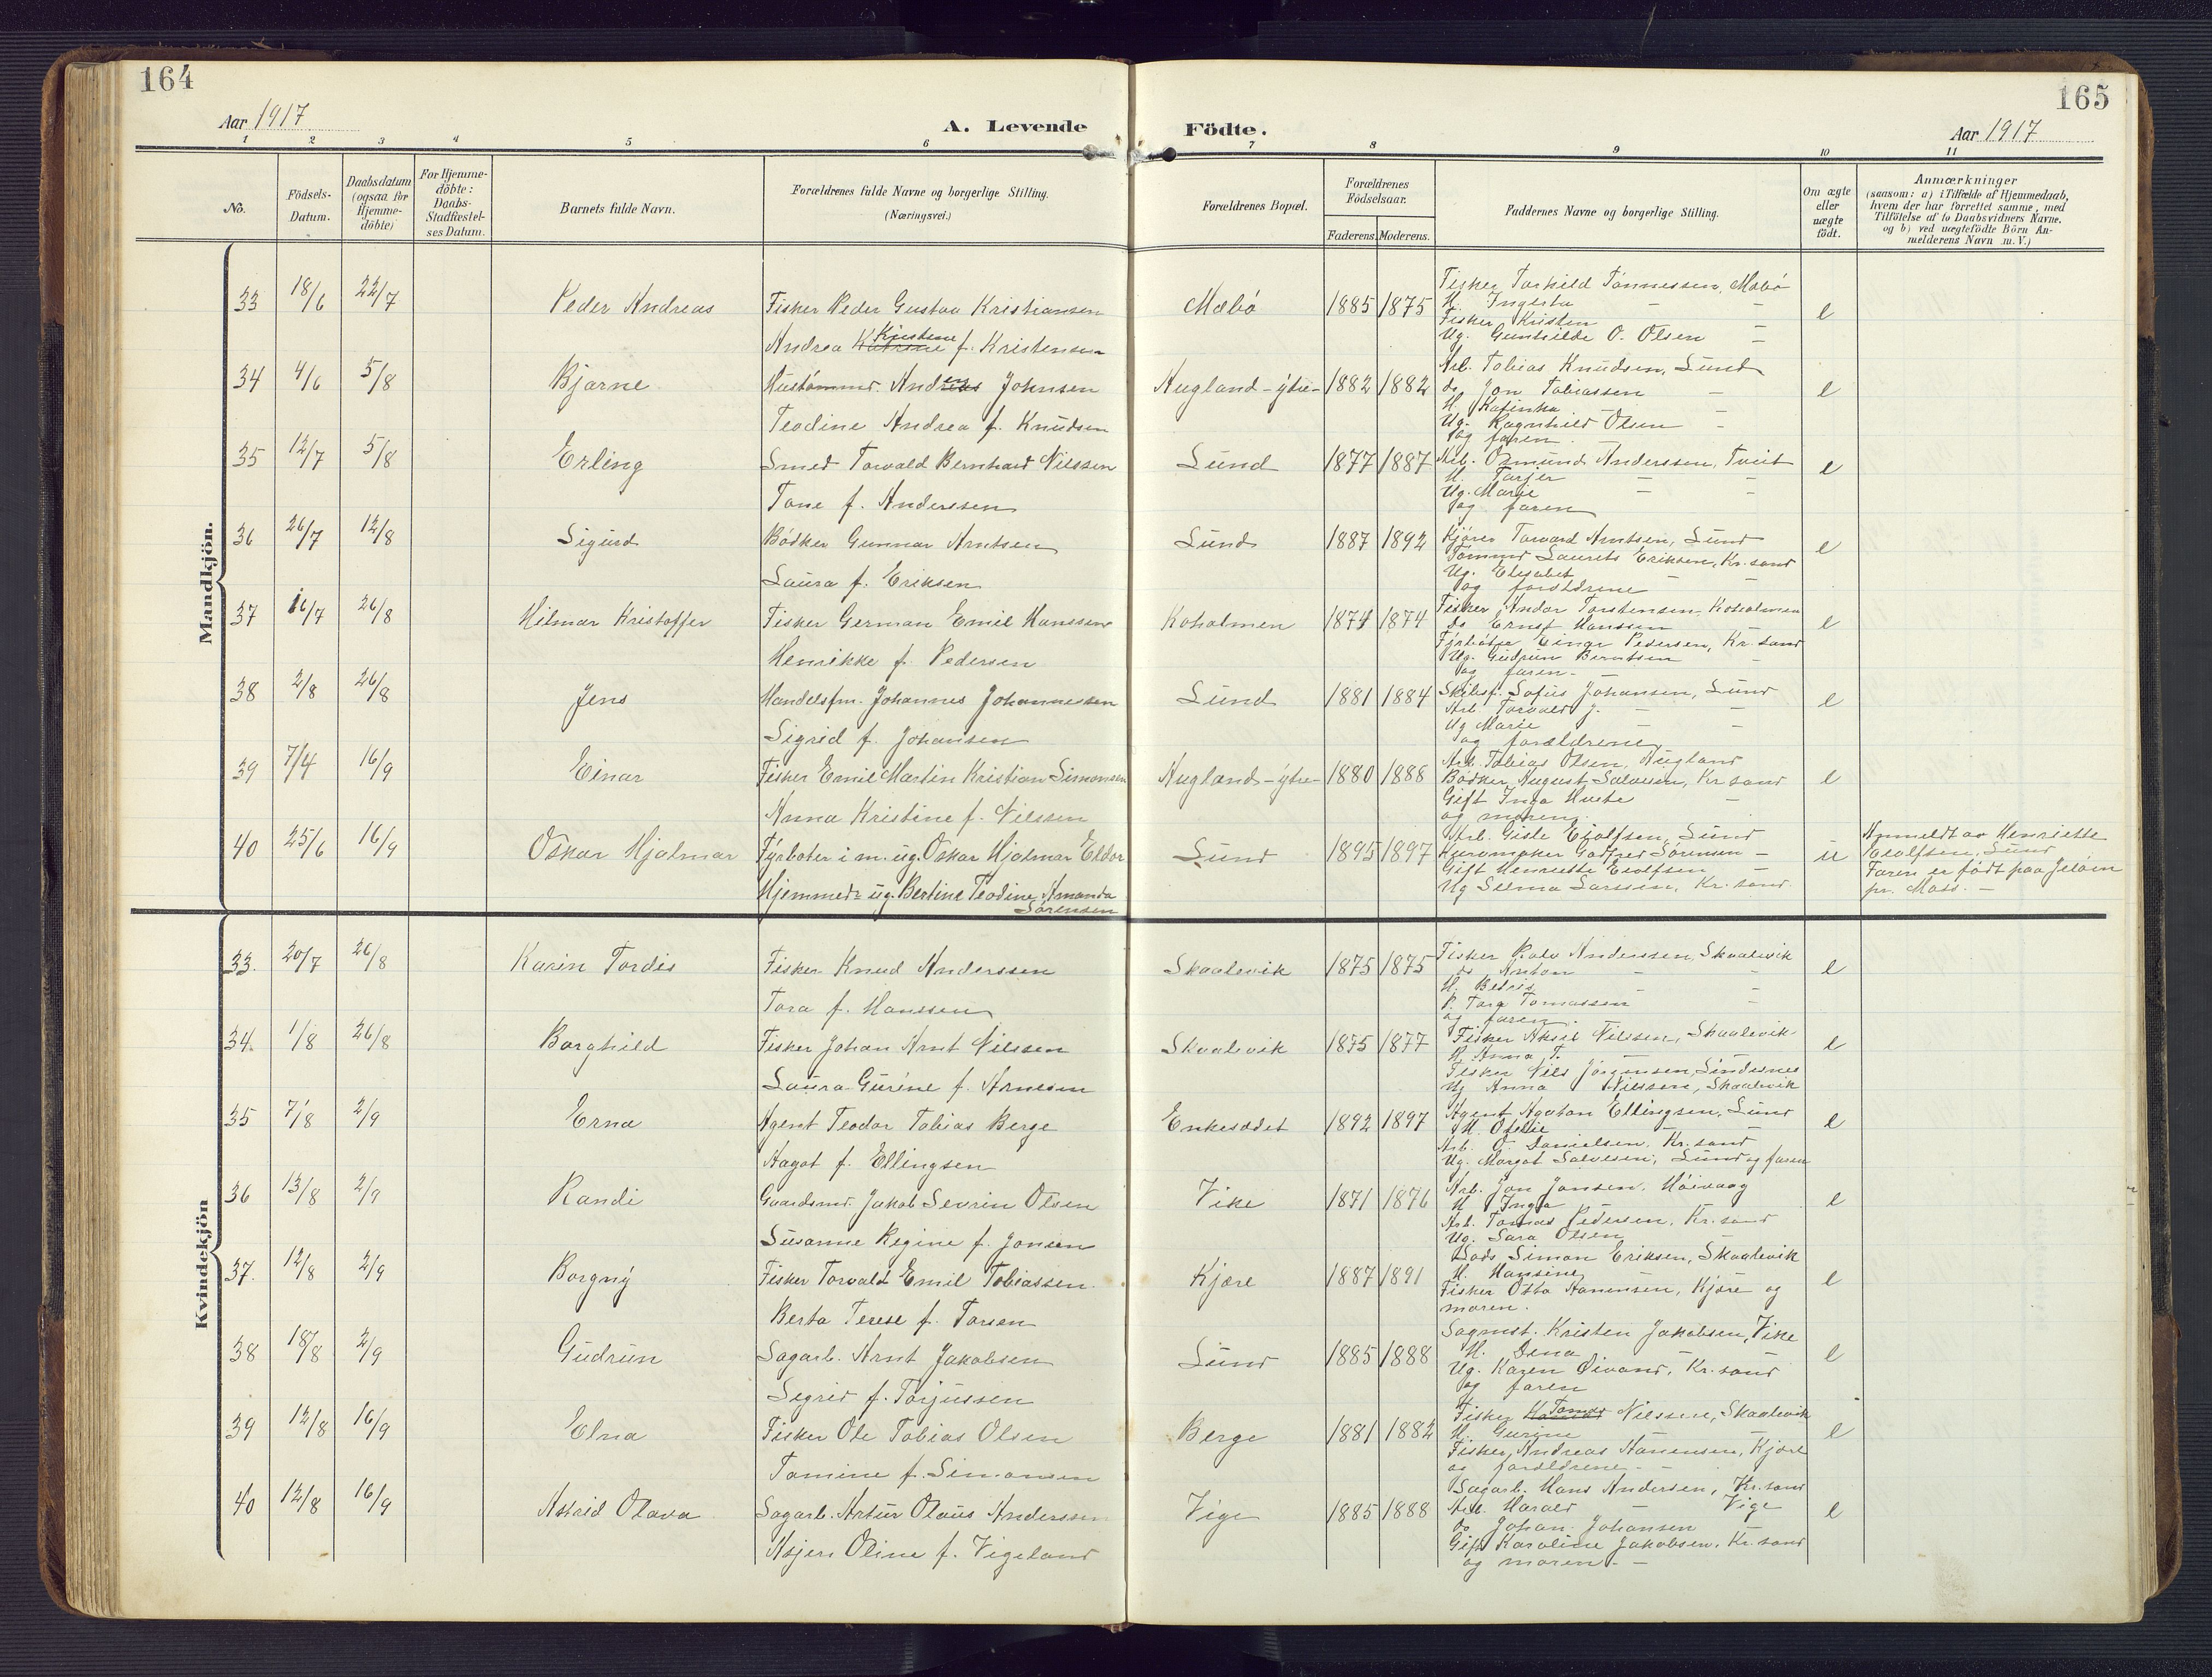 164
165
Aar 1917
A. Levende
Födte.
Aar 1917
1 2 3 4 5 6 7 8 9 10 11
No.
Födsels-Datum.
Daabsdatum (ogsaa for Hjemme-döbte)
For Hjemme-döbte: Daabs-Stadfæstel-ses Datum.
Barnets fulde Navn.
Forældrenes fulde Navne og borgerlige Stilling.
(Næringsvei.)
Forældrenes Bopæl.
Forældrenes Födselsaar.
Faderens. Moderens.
Faddernes Navne og borgerlige Stilling.
Om ægte eller uægte födt.
Anmærkninger
(saasom: a) i Tilfælde af Hjemmedaab,
hvem der har forrettet samme, med
Tilföielse af to Daabsvidners Navne,
og b) ved uægtefödte Börn An-
melderens Navn m. V.)
Mandkjön.
33 18/6 22/7 Peder Andreas Fisker Peder Gustav Kristiansen Mæbö 1885 1875 e
Andrea Kristine f. Kristensen
Fisker Torkild Tönnessen, Mæbö
H. Ingerta — —
Fisker Kristen
Ug. Gunhilde O. Olsen —
34 4/6 5/8 Bjarne Hustömmr. Anders Johnsen Augland-ytre- 1882 1882 e
Teodine Andrea f. Knudsen
Arb. Tobias Knudsen, Lund
do Jon Tobiassen —
H. Katinka — —
Ug. Ragnhild Olsen -
og faren
35 12/7 5/8 Erling Smed Torvald Bernhard Nilssen Lund 1877 1887 e
Tone f. Anderssen
Arb. Osmund Anderssen, Tveit
H. Tarjer — —
Ug. Marie — —
og faren
36 26/7 12/8 Sigurd Bödker Gunnar Arntsen Lund 1887 1892 e
Laura f. Eriksen
Kjörer Torvard Arntsen, Lund
Tömmr Laurits Eriksen, Kr.sand
Ug. Elisabet — —
og forældrene
37 16/7 26/8 Hilmar Kristoffer Fisker German Emil Hanssen Koholmen 1874 1874 e
Henrikke f. Pedersen
Fisker Andor Torstensen, Koholmen
do Ernst Hanssen —
Fyrböter Einar Pedersen, Kr.sand
Ug. Gudrun Berntsen -
og faren. —
38 2/8 26/8 Jens Handelsfm. Johannes Johannessen Lund 1881 1884 e
Sigrid f. Johansen
Skibsf. Sofus Johansen, Lund
Arb. Torvald J. — —
Ug Marie — —
og forældrene
39 7/4 16/9 Einar Fisker Emil Martin Kristian Simonsen Augland-ytre- 1880 1888 e
Anna Kristine f. Nilssen
Arb. Tobias Olsen, Augland
Bödker August Salvesen, Kr.sand
Gift Inga —
og moren.
40 25/6 16/9 Oskar Hjalmar Fyrböter i m. ug. Oskar Hjalmar Eldor Lund 1895 1897 u
Hjemmedr ug. Bertine Teodine Amanda
Sörensen
Arb. Gisle Eiolfsen, Lund
Godfred Sörensen —
Gift Henriette Eiolfsen —
Ug Selma Larssen, Kr. sand.
Anmeldt av Henriette
Eiolfsen, Lund
Faren er födt paa Jelöen
pr. Moss. —
Kvindekjön
33. 20/7 26/8 Karin Tordis Fisker Knud Anderssen Skaalevik 1875 1875 e
Tora f. Hanssen
Fisker Anderssen, Skaalevik
do Anton — —
H. Bedris — —
P. Tora Tomassen —
og faren.
34. 1/8 26/8 Borghild Fisker Johan Arnt Nilssen Skaalevik 1875 1877 e
Laura Gurine f. Arnesen
Fisker Aksel Nilssen, Skaalevik
H. Anna T. — —
Fisker Nils Jörgensen, Lindesnes
Ug Anna Nilssen, Skaalevik
35 7/8 2/9 Erna Agent Teodor Tobias Berge Enkesædet 1892 1897 e
Aagot f. Ellingsen
Agent Agaton Ellingsen, Lund
H. Ofelie —
Arb. O. Danielsen, Kr.sand
Ug. Margot Salvesen, Lund og faren
36 13/8 2/9 Randi Gaardmr. Jakob Severin Olsen Vike 1871 1876 e
Susanne Regine f. Jonsen
Arb. Jon Jonsen, Höivaag
H Inga —
Arb. Tomas Pedersen, Kr.sand
Ug. Sara Olsen —
37. 12/8 2/9 Borgny Fisker Torvald Emil Tobiassen Kjære 1887 1891 e
Berta Terese f. Torsen
Lods Simon Eriksen, Skaalevik
H. Hansine — —
Fisker Otto Aanensen, Kjære og
moren.
38 18/8 2/9 Gudrun Sagarb. Arnt Jakobsen Lund 1885 1888 e
Sigrid f. Torjussen
Sagmst. Kristen Jakobsen, Vike
H. Dena — —
Ug. Karen Öivand, Kr.sand
og faren
39 12/8 16/9 Elna Fisker Ole Tobias Olsen Berge 1881 1882 e
Tomine f. Simonsen
Fisker Tomas Nilssen, Skaalevik
H. Gurine — —
Fisker, Andreas Aanensen, Kjære
og forældrene —
40 12/8 16/9 Astrid Olava Sagarb. Artur Olaus Anderssen Vige 1885 1888 e
Asjer Oline f. Vigeland
Sagarb. Hans Andersen, Kr.sand
Arb. Harald — Vige
do Johan Johansen —
Gift Karoline Jakobsen, Kr.sand
og moren. —